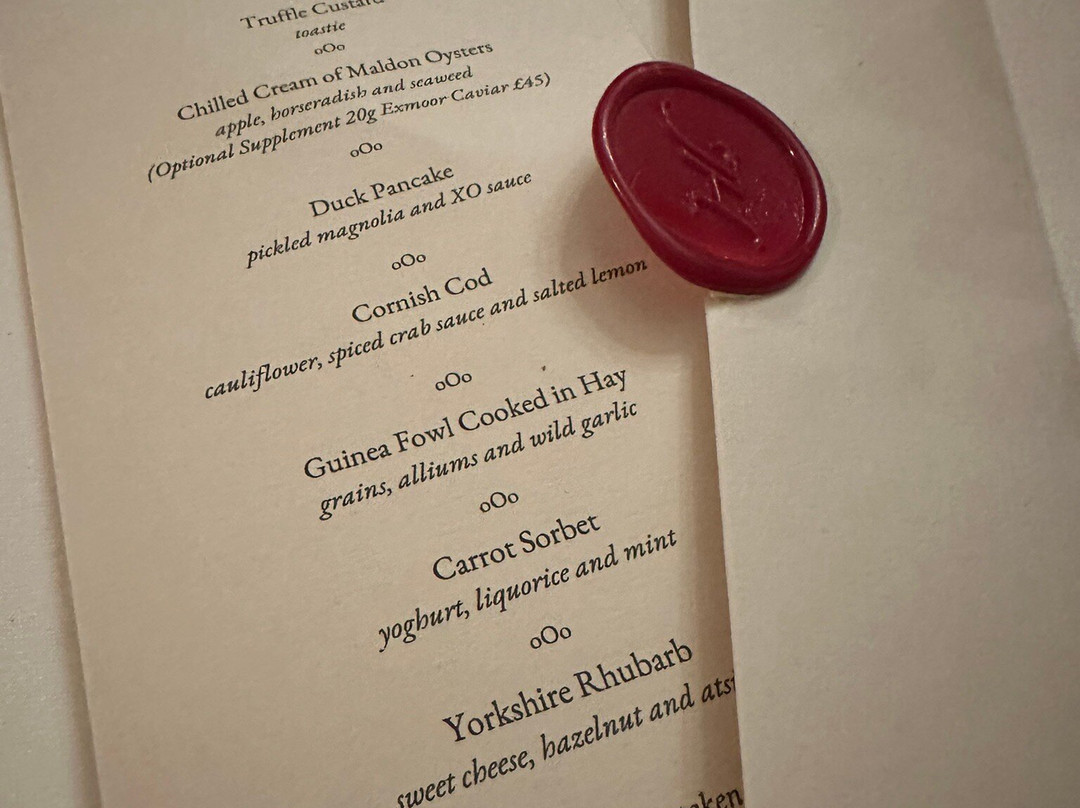 Truffle Custard
toastie
oOo
Chilled Cream of Maldon Oysters
apple, horseradish and seaweed
(Optional Supplement 20g Exmoor Caviar £45)
oOo
Duck Pancake
pickled magnolia and XO sauce
oOo
Cornish Cod
cauliflower, spiced crab sauce and salted lemon
oOo
Guinea Fowl Cooked in Hay
grains, alliums and wild garlic
oOo
Carrot Sorbet
yoghurt, liquorice and mint
oOo
Yorkshire Rhubarb
sweet cheese, hazelnut and